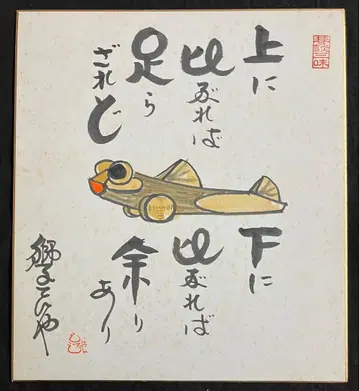 上に
比ぶれば
足ら
ざれど
下に
比ぶれば
余り
あり
獅子てんや